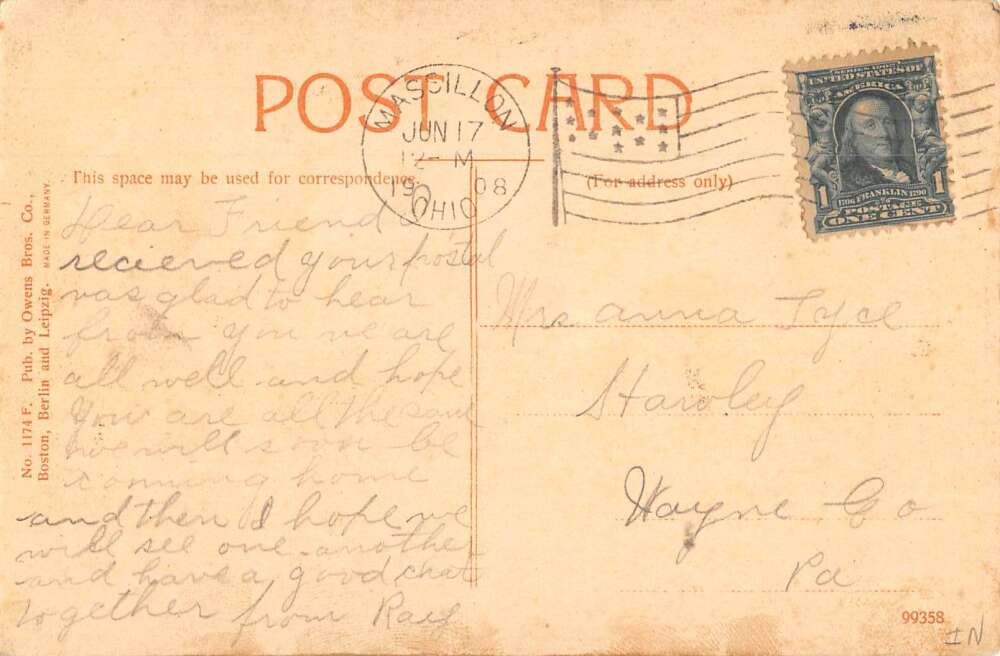 POST CARD
MASSILLON
JUN 17
12- M
19 08
OHIO
SERIES 1902
UNITED STATES OF
AMERICA
1706 FRANKLIN 1790
1 POSTAGE
ONE CENT
This space may be used for correspondence.
(For address only)
No. 1174 F. Pub. by Owens Bros. Co.,
Boston, Berlin and Leipzig. MADE IN GERMANY.
Dear Friend I
recieved your postal
was glad to hear
from you we are
all well and hope
you are all the same
we will soon be
comming home
and then I hope we
will see one another
and have a good chat
together from Ray
Mrs Anna Tyce
Hawley
Wayne Co
Pa
99358
IN